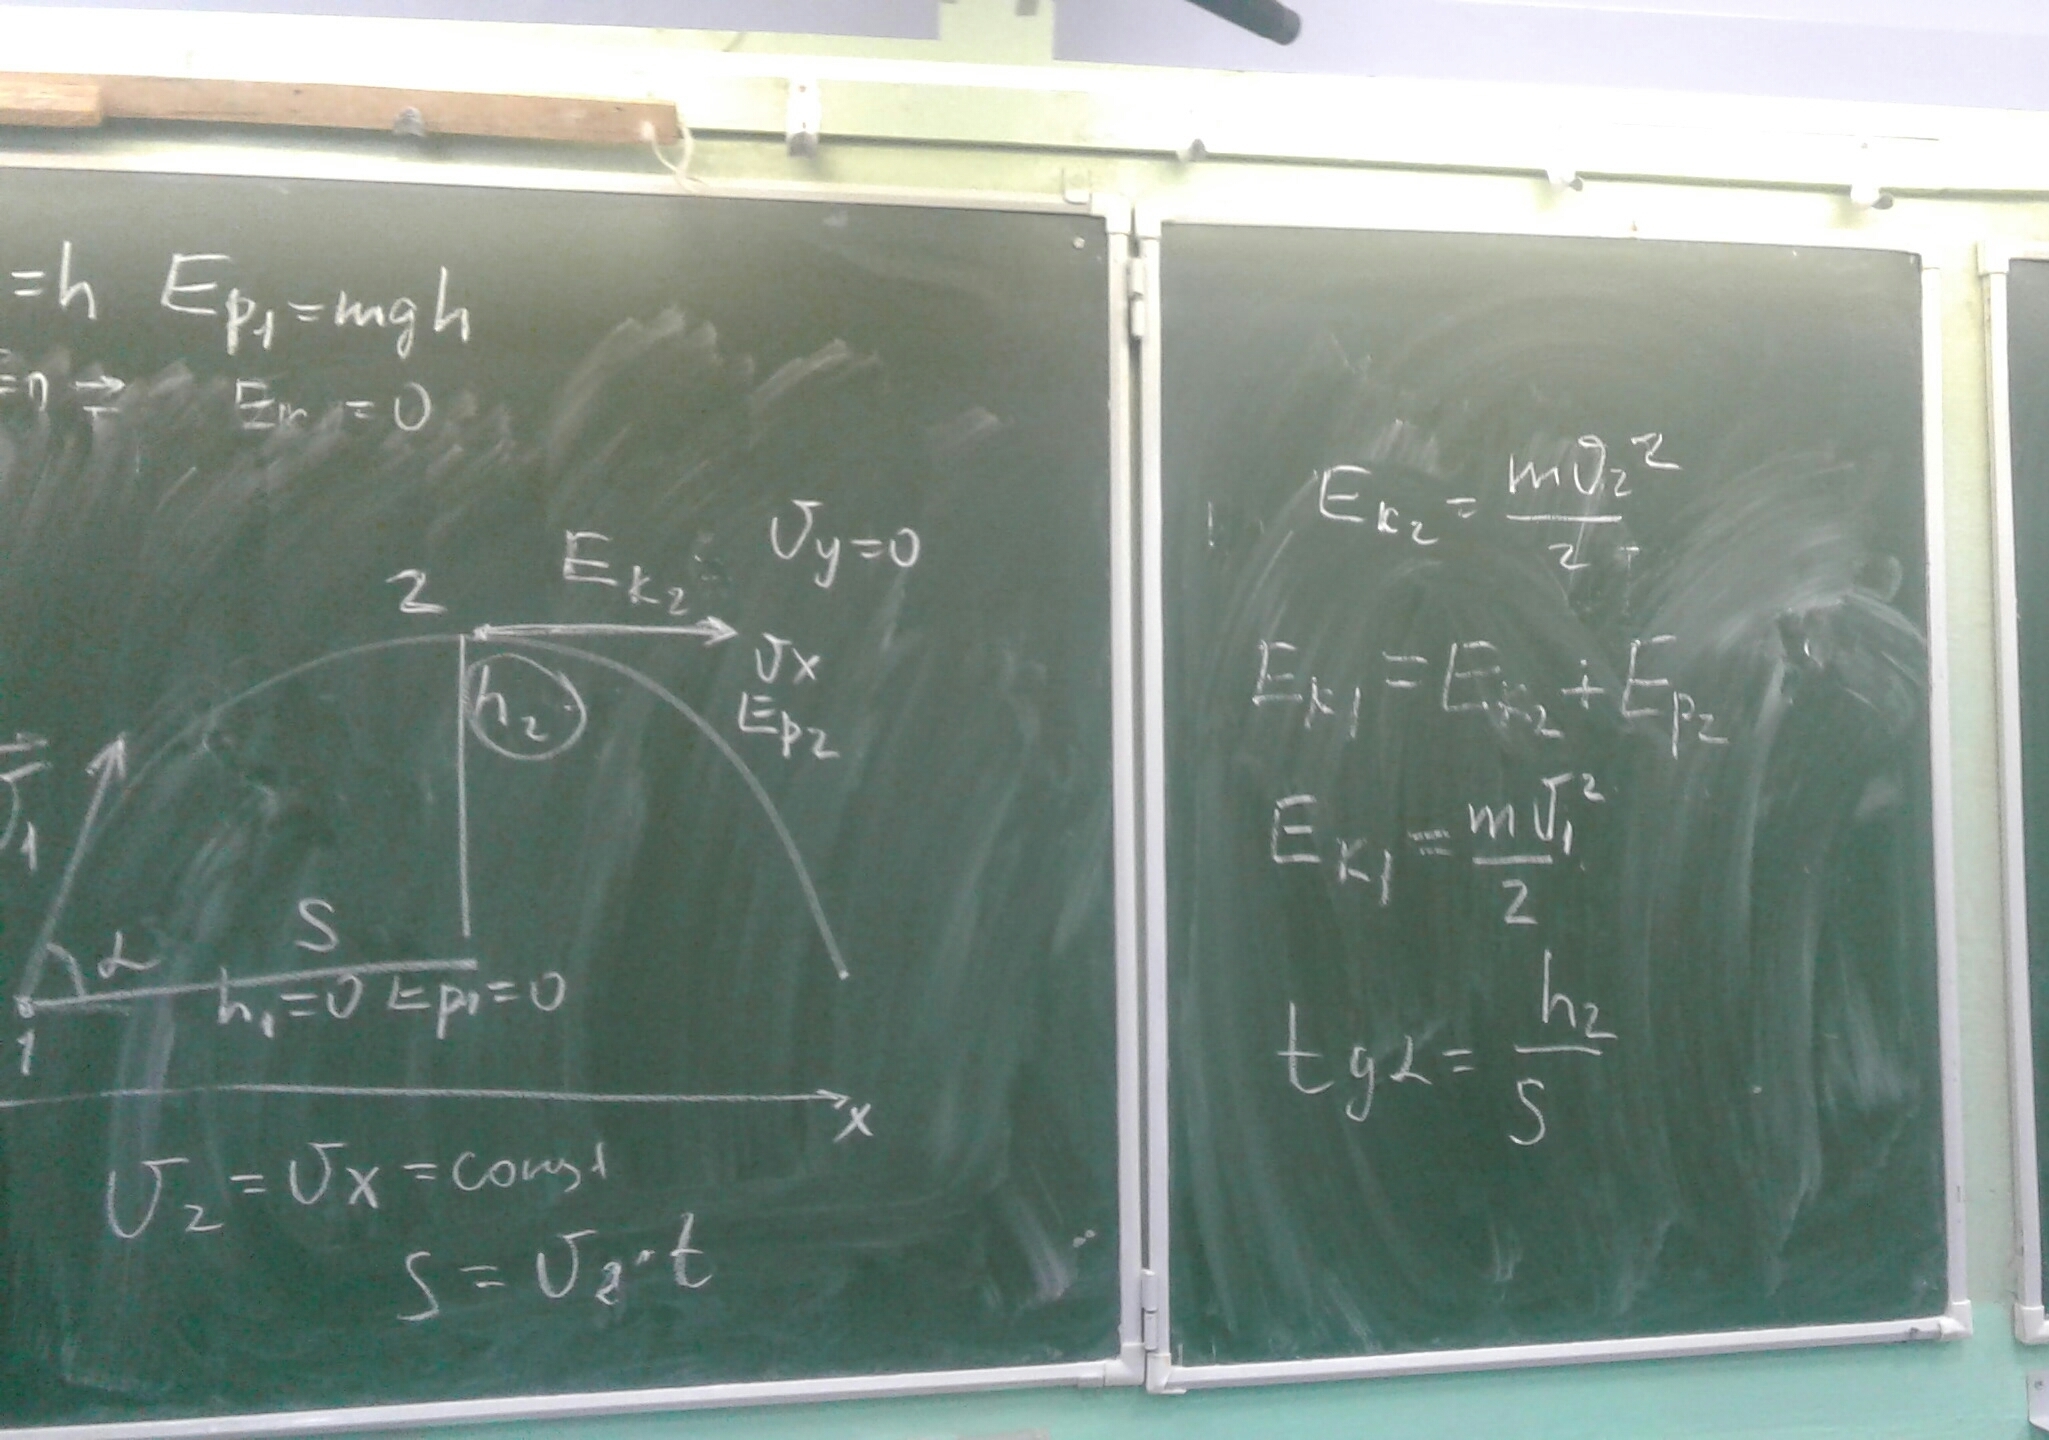 =h Ep₁=mgh
=0
2 Eк₂ υy=0
υx
h₂ Ep₂
υ₁
S
α
h₁=0 Ep₁=0
1
x
υ₂=υx=const
S=υ₂·t
Eк₂=mυ₂²/2
Eк₁=Eк₂+Ep₂
Eк₁=mυ₁²/2
tgα=h₂/S